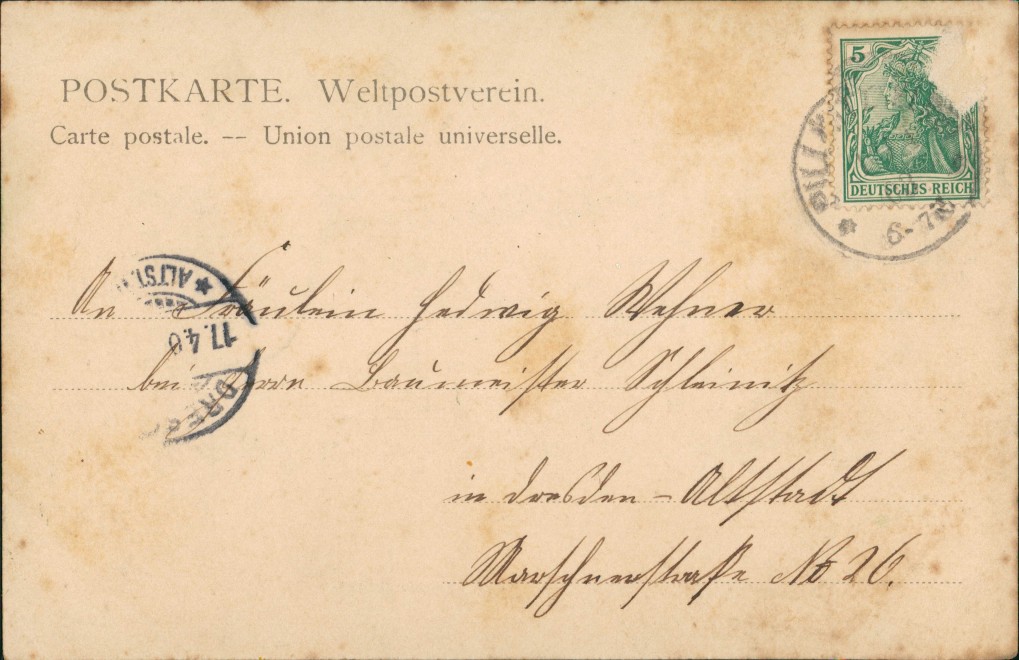 POSTKARTE. Weltpostverein.
Carte postale. -- Union postale universelle.
5
DEUTSCHES REICH
6-7N
ALTST.
17.4.0
DRES
An Fräulein Hedwig Wehner
bei Herrn Baumeister Schleinitz
in Dresden-Altstadt
Marschnerstraße No 26.